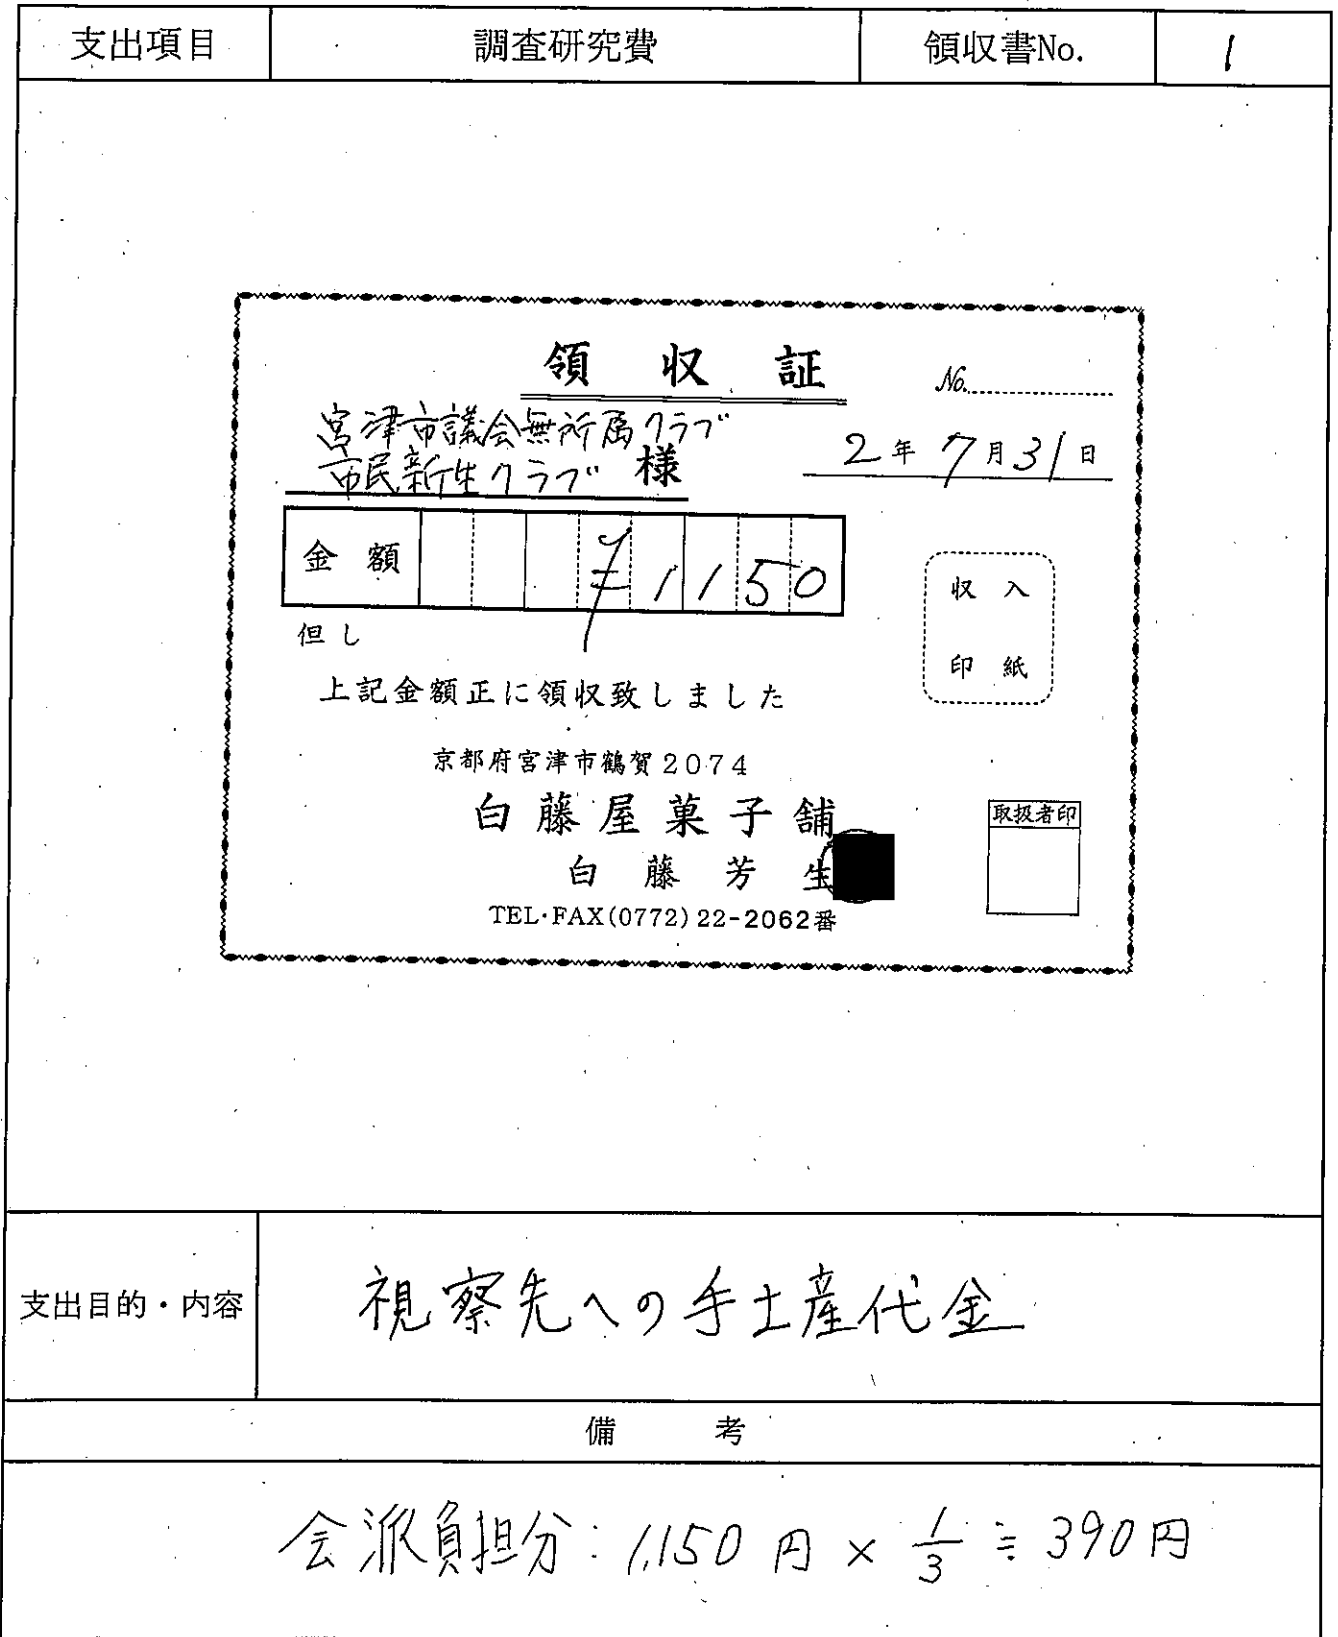 支出項目 調査研究費 領収書No. 1
領収証 No.
宮津市議会無所属クラブ
市民新生クラブ 様
2年7月31日
金額 ¥1150
収入
印紙
但し
上記金額正に領収致しました
京都府宮津市鶴賀2074
白藤屋菓子舗
取扱者印
白藤芳生
TEL・FAX(0772)22-2062番
支出目的・内容 視察先への手土産代金
備考
会派負担分:1,150円×1/3≒390円